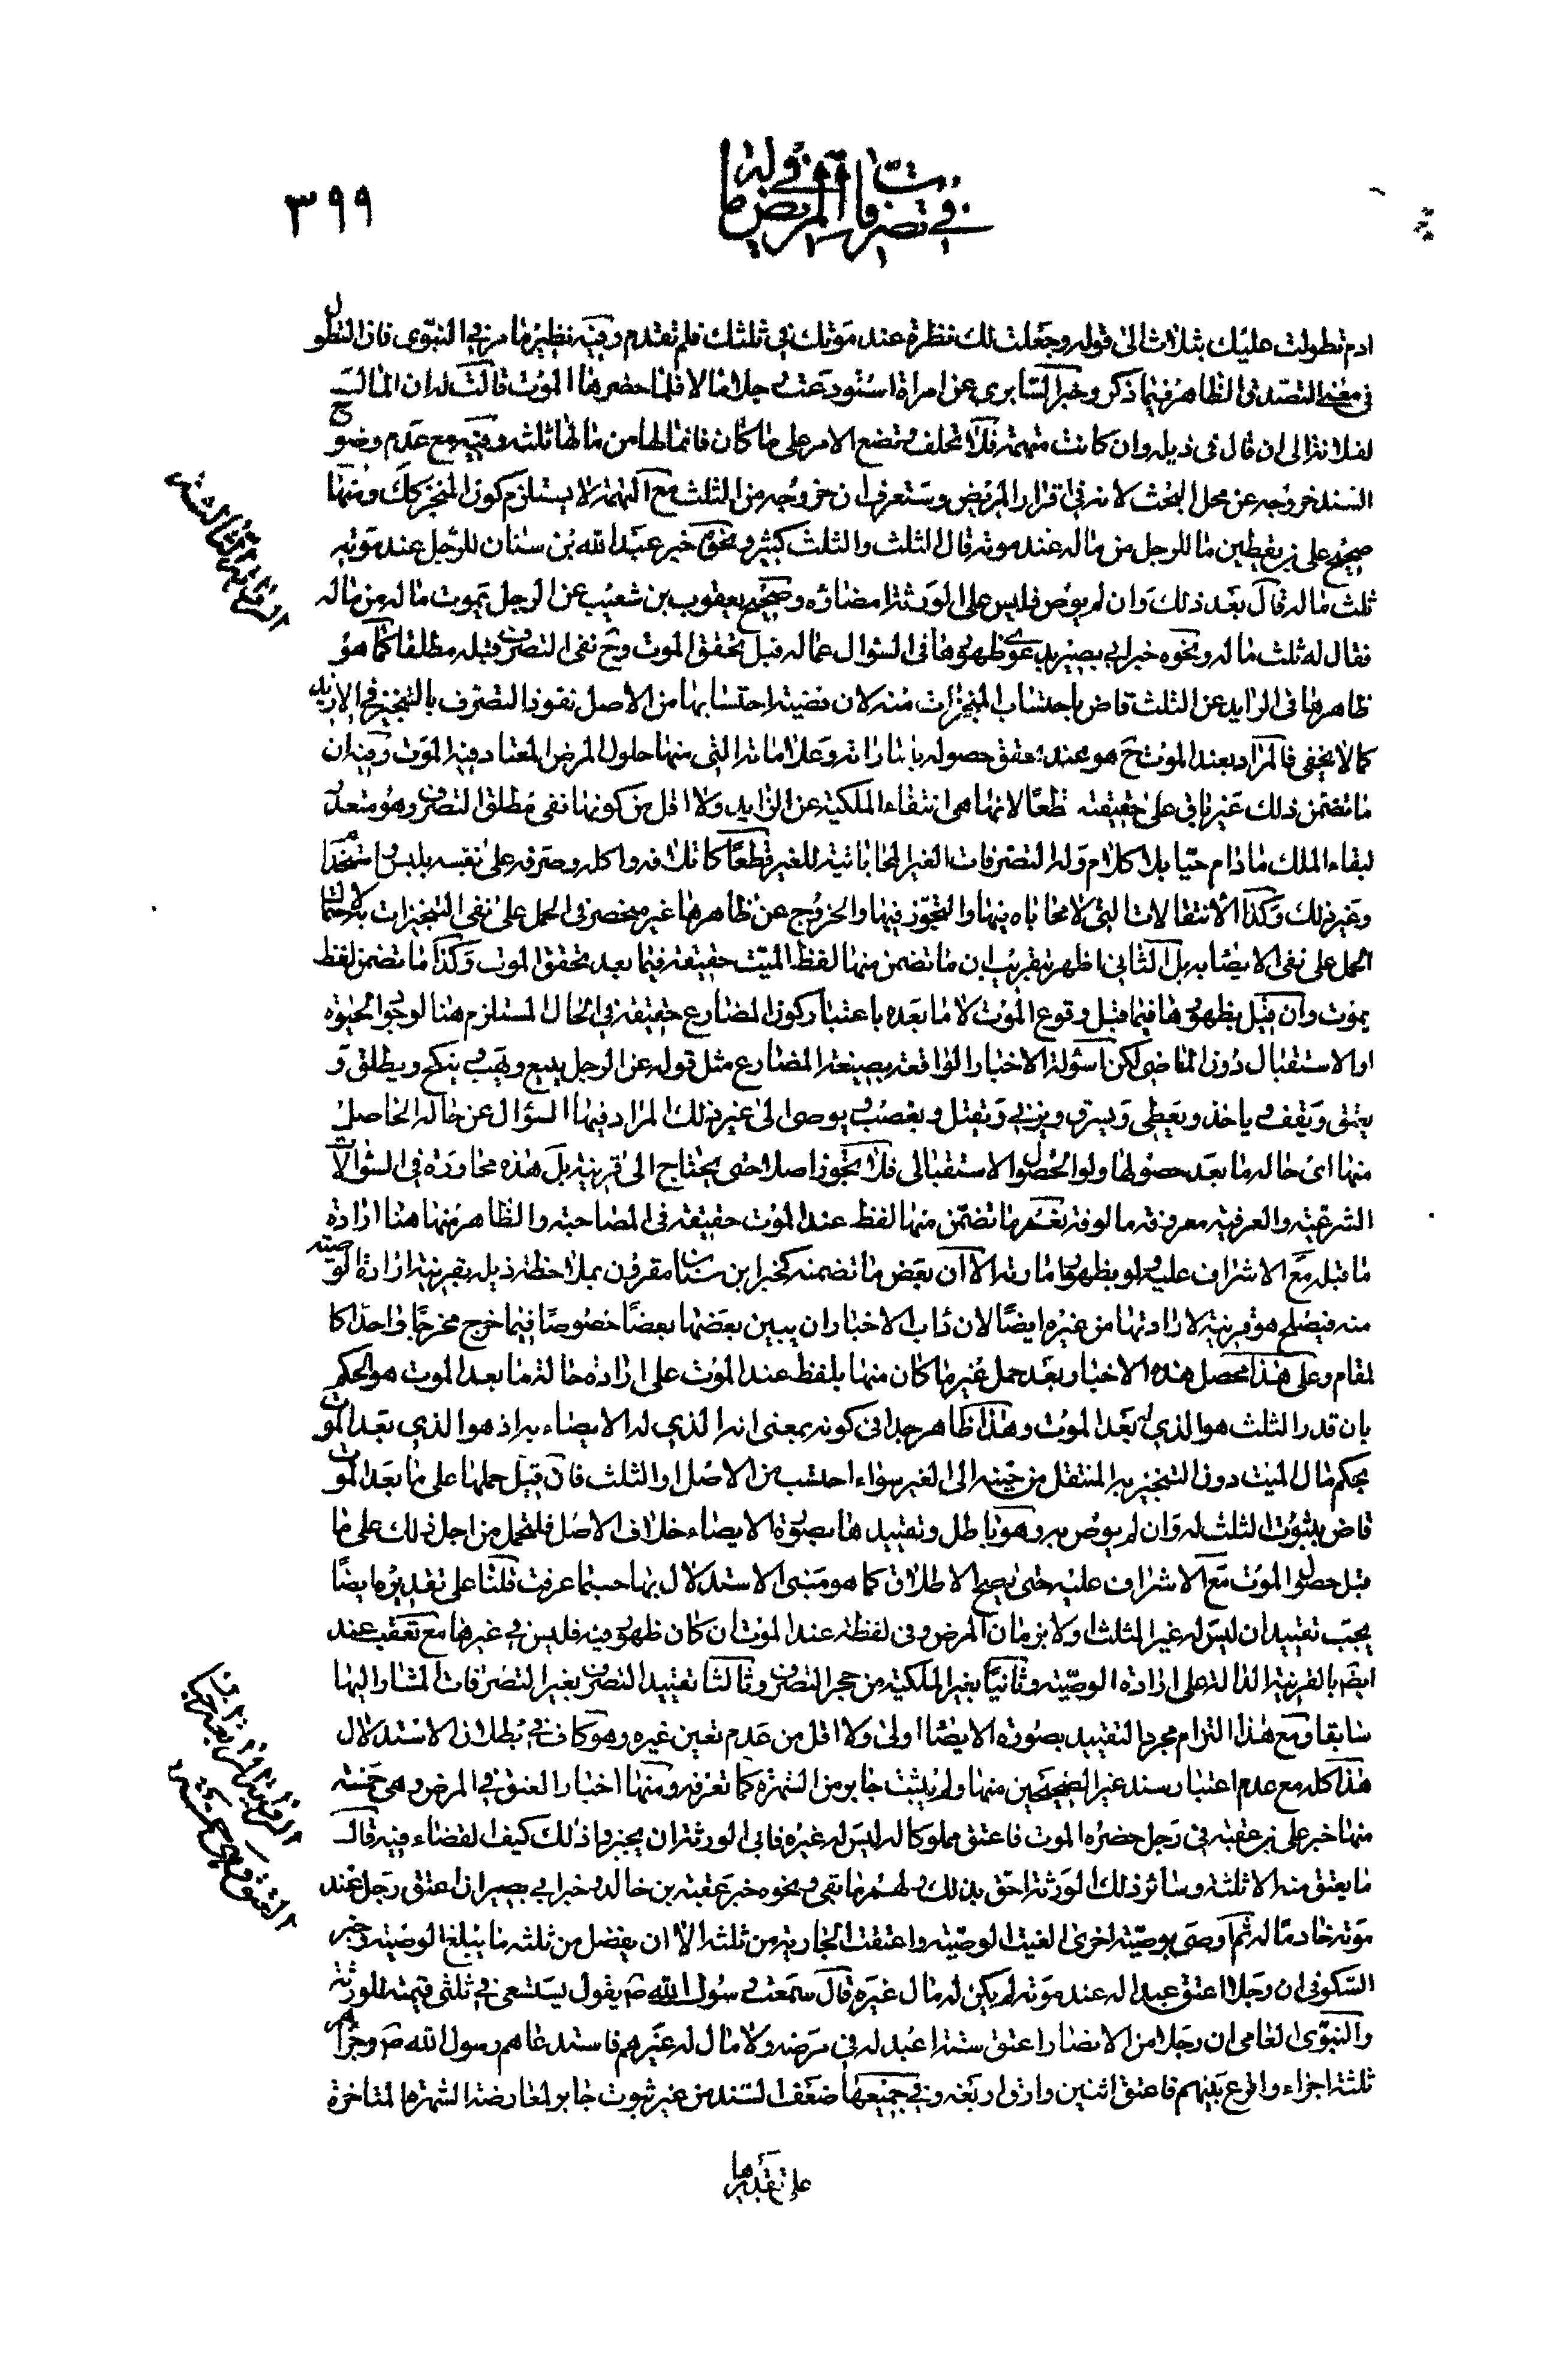 في تصرفات المريض في ماله
٣٩٩
ادم تطولت عليك بثلاث الى قوله وجعلت لك نظرة عند موتك في ثلثك فلم تقدم وفيه نظير ما مر في النبوي فان التطول
في معنى التصدق الظاهر فيما ذكر وخبر السابري عن امراة استودعت رجلا مالا فلما حضرها الموت قالت له ان المال لك
لفلانة الى ان قال في ذيله وان كانت متهمة فلا تحلف وتضع الامر على ما كان فانما لها من مالها ثلثه وفيه مع عدم وضوح
السند خروجه عن محل البحث لانه في اقرار المريض وستعرف ان خروجه من الثلث مع التهمة لا يستلزم كون المنجز كك ومنها
صحيح علي بن يقطين ما للرجل من ماله عند موته قال الثلث والثلث كثير ونحوه خبر عبد الله بن سنان للرجل عند موته
ثلث ماله قال بعد ذلك وان لم يوص فليس على الورثة امضاؤه وصحيح يعقوب بن شعيب عن الرجل يموت ما له من ماله
فقال له ثلث ماله ونحوه خبر ابي بصير بدعوى ظهورها في السؤال عما له قبل تحقق الموت وح نفي التصرف قبله مطلقا كما هو
ظاهرها في الزايد عن الثلث قاض باحتساب المنجزات منه لان قضية احتسابها من الاصل نفوذ التصرف بالتنجيز في الازيد
كما لا يخفى فالمراد بعند الموت ح هو عند تحقق حصوله باماراته وعلاماته التي منها حلول المرض المعتاد فيه الموت وفيه ان
ما تضمن ذلك غير باق على حقيقته قطعا لانها هي انتفاء الملكية عن الزايد ولا اقل من كونها نفي مطلق التصرف وهو متعذر
لبقاء الملك ما دام حيا بلا كلام وله التصرفات الغير المحاباتية للغير قطعا كاتلافه واكله وصرفه على نفسه بلبس واستخدام
وغير ذلك وكذا الانتقالات التي لا محاباه فيها والتجوز فيها والخروج عن ظاهرها غير منحصر في الحمل على نفي التنجيزات بلا احتمال
الحمل على نفي الايصاء به بل الثاني اظهر بتقريب ان ما تضمن منها لفظ الميت حقيقة فيما بعد تحقق الموت وكذا ما تضمن لفظ
يموت وان قيل بظهورها فيما قبل وقوع الموت لا ما بعده باعتبار كون المضارع حقيقة في الحال المستلزم هنا لوجود الحيوة
او الاستقبال دون الماضي لكن اسؤلة الاخبار الواقعة بصيغة المضارع مثل قوله عن الرجل يبيع ويهب وينكح ويطلق و
يعتق ويقف وياخذ ويعطي ويسرق ويزني ويقتل ويغصب ويوصى الى غير ذلك المراد فيها السؤال عن حاله الحاصل
منها اي حاله ما بعد حصولها ولو الحصول الاستقبالي فلا تجوز اصلا حتى يحتاج الى قرينة بل هذه محاورة في السؤالات
الشرعية والعرفية معروفة مالوفة نعم ما تضمن منها لفظ عند الموت حقيقة في المصاحبة والظاهر منها هنا ارادة
ما قبله مع الاشراف عليه ولو بظهور اماراته الا ان بعض ما تضمنه كخبر ابن سنان مقرون بملاحظة ذيله بقرينة ارادة الوصية
منه فيصلح هو قرينة لارادتها من غيره ايضا لان داب الاخبار ان يبين بعضها بعضا خصوصا فيما خرج مخرجا واحدا كا
لمقام وعلى هذا محصل هذه الاخبار وبعد حمل غير ما كان منها بلفظ عند الموت على ارادة حالة ما بعد الموت هو الحكم
بان قدر الثلث هو الذي له بعد الموت وهذا ظاهر جدا في كونه بمعنى انه الذي له الايصاء به اذ هو الذي بعد الموت
بحكم مال الميت دون التنجيز به المنتقل من حينه الى الغير سواء احتسب من الاصل او الثلث فان قيل حملها على ما بعد الموت
قاض بثبوت الثلث له وان لم يوص به وهو باطل وتقييدها بصورة الايصاء خلاف الاصل فلتحمل من اجل ذلك على ما
قبل حصول الموت مع الاشراف عليه حتى يصح الاطلاق كما هو مبنى الاستدلال بها حسبما عرفت قلنا على تقديره ايضا
يجب تقييد ان ليس له غير الثلث اولا بزمان المرض وفي لفظة عند الموت ان كان ظهور فيه فليس في غيرها مع تعقب عند
ايضا بالقرينة الدالة على ارادة الوصية وثانيا بغير الملكية من حجر التصرف وثالثا تقييد التصرف بغير التصرفات المشار اليها
سابقا ومع هذا التزام مجرد التقييد بصورة الايصاء اولى ولا اقل من عدم تعين غيره وهو كاف في بطلان الاستدلال
هذا كله مع عدم اعتبار سند غير الصحيحين منها ولم يثبت جابر من الشهرة كما تعرفه ومنها اخبار العتق في المرض وهي خمسة
منها خبر علي بن عقبة في رجل حضره الموت فاعتق مملوكا له ليس له غيره فابى الورثة ان يجيزوا ذلك كيف القضاء فيه قال
ما يعتق منه الا ثلثه وسائر ذلك الورثة احق بذلك ولهم ما بقي ونحوه خبر عقبة بن خالد وخبر ابي بصير ان اعتق رجل عند
موته خادما له ثم اوصى بوصية اخرى الغيت الوصية واعتقت الجارية من ثلثه الا ان يفضل من ثلثه ما يبلغ الوصية وخبر
السكوني ان رجلا اعتق عبدا له عند موته لم يكن له مال غيره قال سمعت رسول الله ص يقول يستسعى في ثلثي قيمته للورثة
والنبوي العامي ان رجلا من الانصار اعتق ستة اعبد له في مرضه ولا مال له غيرهم فاستدعاهم رسول الله ص وجزاهم
ثلثة اجزاء واقرع بينهم فاعتق اثنين وارق اربعة وفي جميعها ضعف السند من غير ثبوت جابر لمعارضة الشهرة المتاخرة
على تقديرها